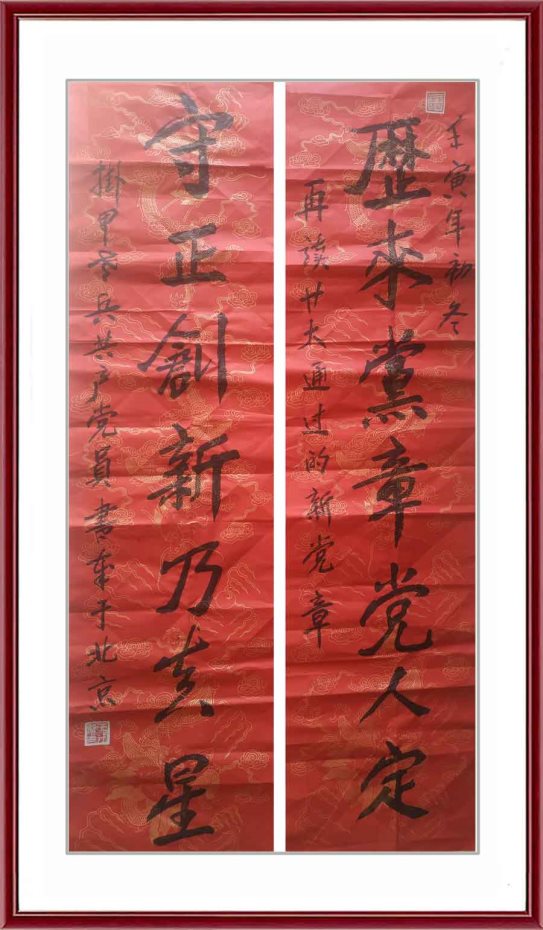 壬寅年初冬
歷来黨章党人定
再读廿大通过的新党章
守正創新乃真星
掛甲老兵共产党員書奉于北京